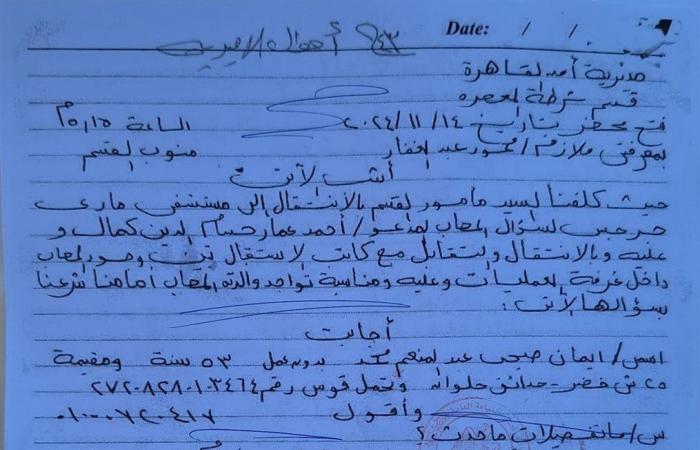 ٢٤٣ أحوال الأميرية
Date: / /
مديرية أمن القاهرة
قسم شرطة المعصره
فتح محضر بتاريخ ١٤/١١/٢٠٢٤ الساعة ٥،١٥م
بمعرفتى ملازم/ محمود عبد الغفار منوب القسم
أثبت الآتى
حيث كلفنا السيد مأمور القسم بالانتقال إلى مستشفى مارى
جرجس لسؤال المصاب المدعو/ أحمد عمار حسام الدين كمال و
عليه وبالانتقال والتقابل مع كانت الاستقبال تبين وجود المصاب
داخل غرفة العمليات وعليه ومناسبة تواجد والدة المصاب أمامنا شرعنا
بسؤالها الآتى:
أجابت
اسمى/ ايمان صبحى عبد المنعم محمد بدون عمل ٥٣ سنة ومقيمة
٢٥ ش خضر - حدائق حلوان وتحمل قومى رقم
وأقول
س/ ما تفصيلات ما حدث؟